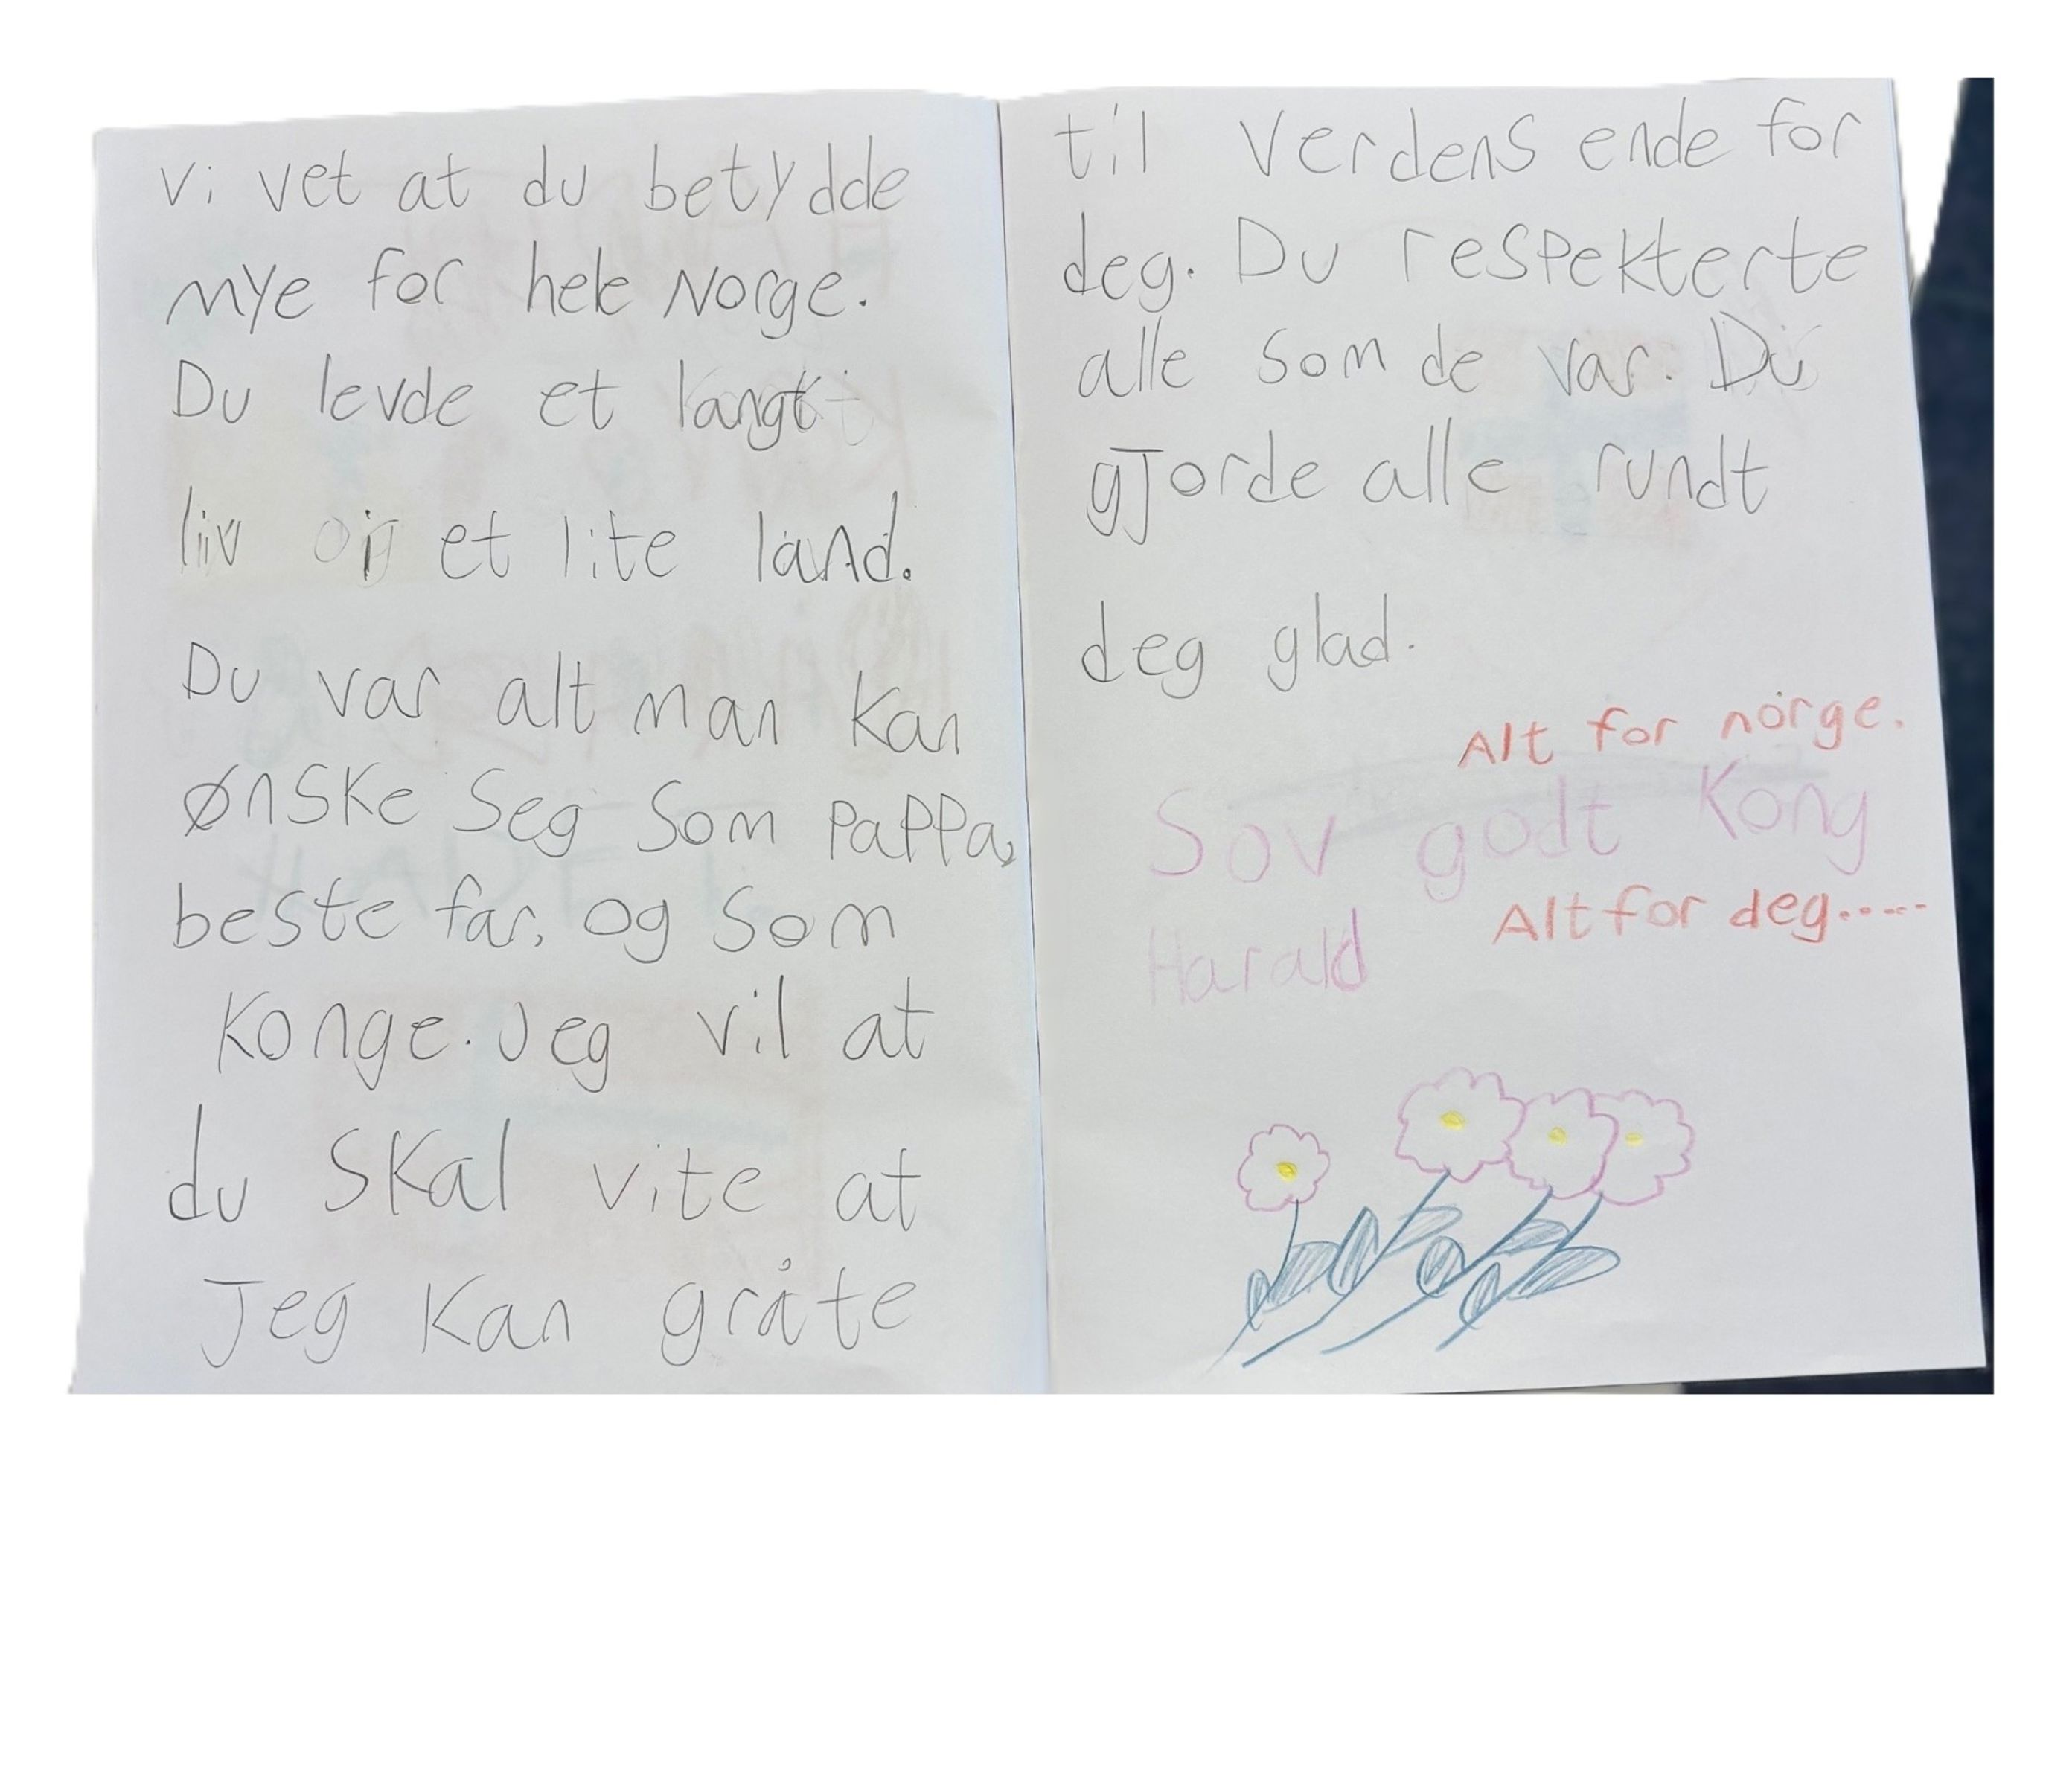 Vi vet at du betydde
mye for hele Norge.
Du levde et langt
liv i et lite land.
Du var alt man kan
ønske seg som pappa,
beste far, og som
Konge. Jeg vil at
du skal vite at
Jeg kan gråte
til verdens ende for
deg. Du respekterte
alle som de var. Du
gjorde alle rundt
deg glad.
Alt for norge.
Sov godt Kong
Alt for deg.....
Harald